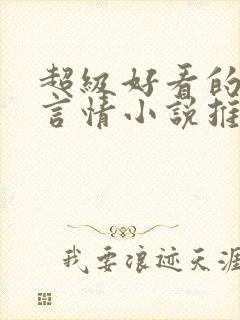 超級好看的
言情小說推
我要浪迹天涯